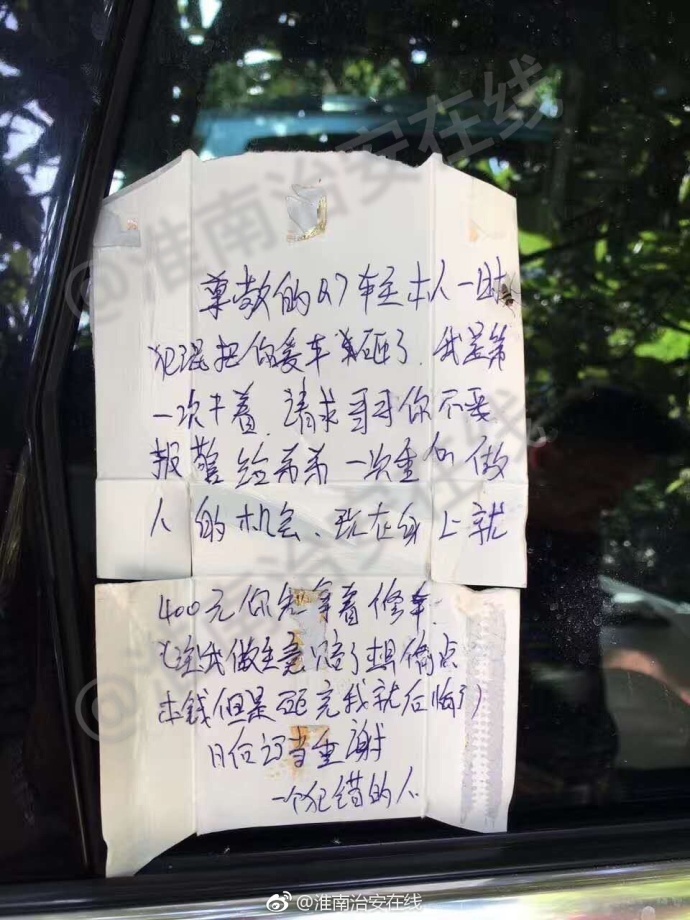 尊敬的Q7车主本人一时
犯混把你爱车给砸了.我是第
一次干着,请求哥哥你不要
报警给弟弟一次重新做
人的机会、现在身上就
400元你先拿着修车.
没做生意赔了想偷点
本钱但是砸完我就后悔了)
日后定当重谢
一个犯错的人
@淮南治安在线
@淮南治安在线
@淮南治安在线